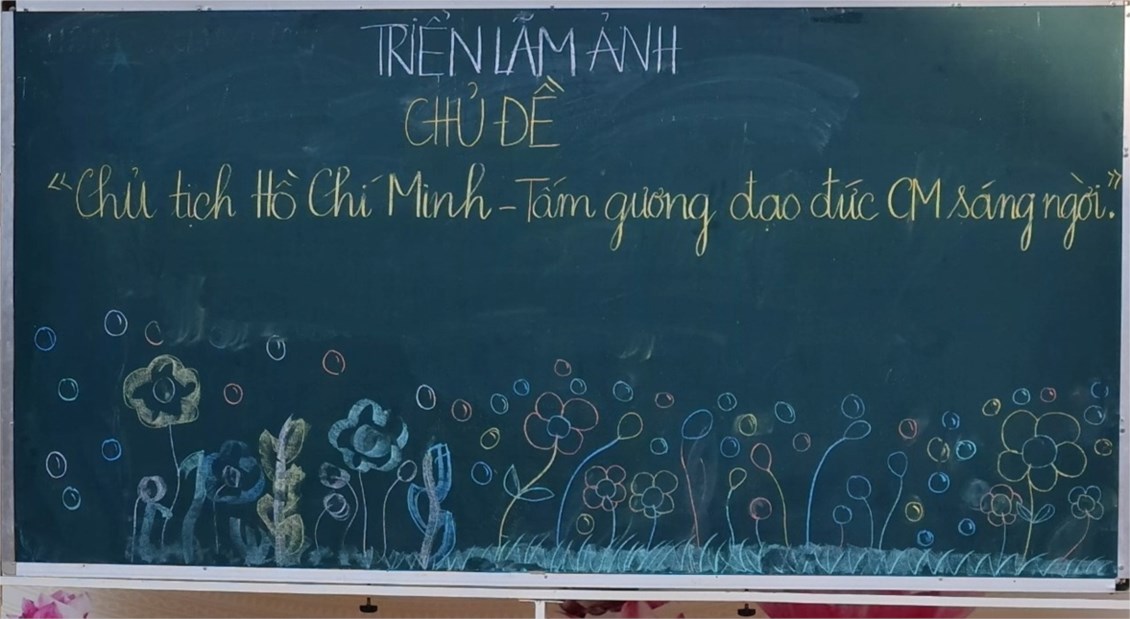 TRIỂN LÃM ẢNH
CHỦ ĐỀ
“Chủ tịch Hồ Chí Minh - Tấm gương đạo đức CM sáng ngời.”